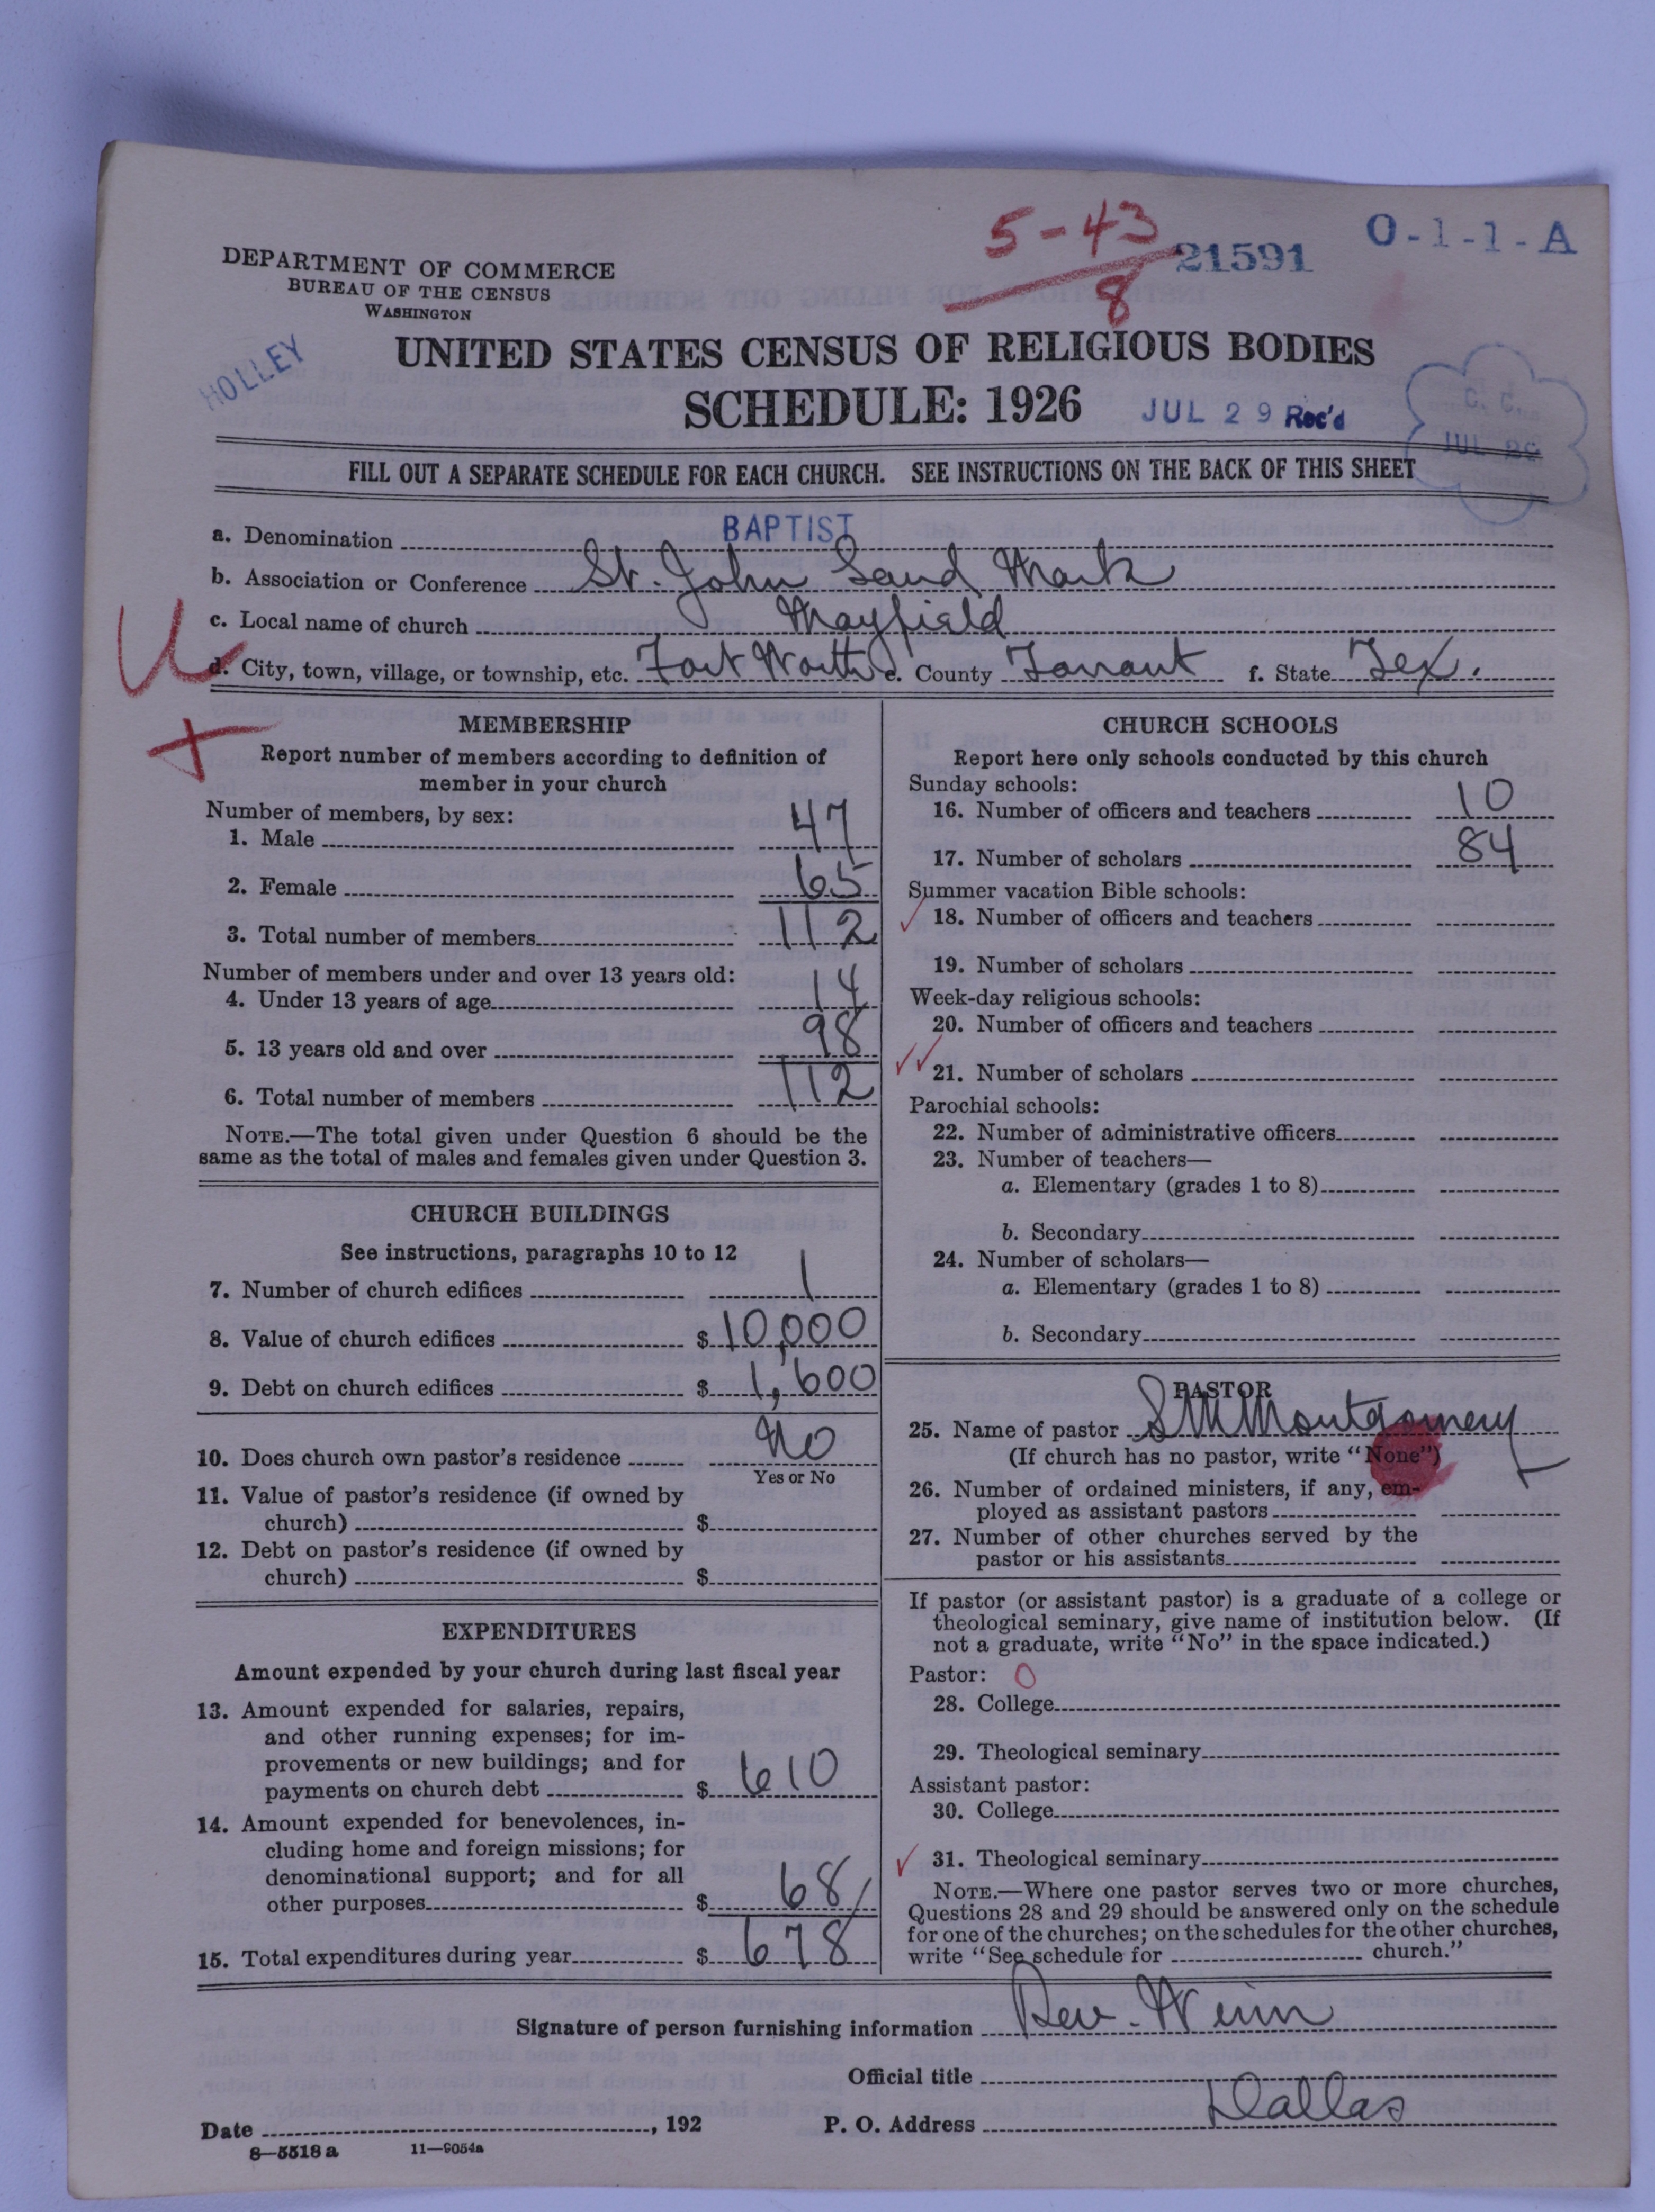 5-43
8
21591
O-1-1-A
DEPARTMENT OF COMMERCE
BUREAU OF THE CENSUS
WASHINGTON
HOLLEY
UNITED STATES CENSUS OF RELIGIOUS BODIES
SCHEDULE: 1926
JUL 29 Rec'd
C. C.
JUL 29
FILL OUT A SEPARATE SCHEDULE FOR EACH CHURCH. SEE INSTRUCTIONS ON THE BACK OF THIS SHEET
a. Denomination BAPTIST
b. Association or Conference St. John Land Mark
c. Local name of church Mayfield
d. City, town, village, or township, etc. Fort Worth e. County Tarrant f. State Tex.
U
MEMBERSHIP
Report number of members according to definition of
member in your church
Number of members, by sex:
1. Male 47
2. Female 65
3. Total number of members 112
Number of members under and over 13 years old:
4. Under 13 years of age 14
5. 13 years old and over 98
6. Total number of members 112
NOTE.—The total given under Question 6 should be the
same as the total of males and females given under Question 3.
CHURCH BUILDINGS
See instructions, paragraphs 10 to 12
7. Number of church edifices 1
8. Value of church edifices $ 10,000
9. Debt on church edifices $ 1,600
10. Does church own pastor's residence No
Yes or No
11. Value of pastor's residence (if owned by
church) $
12. Debt on pastor's residence (if owned by
church) $
EXPENDITURES
Amount expended by your church during last fiscal year
13. Amount expended for salaries, repairs,
and other running expenses; for im-
provements or new buildings; and for
payments on church debt $ 610
14. Amount expended for benevolences, in-
cluding home and foreign missions; for
denominational support; and for all
other purposes $ 68
15. Total expenditures during year $ 678
CHURCH SCHOOLS
Report here only schools conducted by this church
Sunday schools:
16. Number of officers and teachers 10
17. Number of scholars 84
Summer vacation Bible schools:
18. Number of officers and teachers
19. Number of scholars
Week-day religious schools:
20. Number of officers and teachers
21. Number of scholars
Parochial schools:
22. Number of administrative officers
23. Number of teachers—
a. Elementary (grades 1 to 8)
b. Secondary
24. Number of scholars—
a. Elementary (grades 1 to 8)
b. Secondary
PASTOR
25. Name of pastor S M Montgomery
(If church has no pastor, write "None")
26. Number of ordained ministers, if any, em-
ployed as assistant pastors
27. Number of other churches served by the
pastor or his assistants
If pastor (or assistant pastor) is a graduate of a college or
theological seminary, give name of institution below. (If
not a graduate, write "No" in the space indicated.)
Pastor: 0
28. College
29. Theological seminary
Assistant pastor:
30. College
31. Theological seminary
NOTE.—Where one pastor serves two or more churches,
Questions 28 and 29 should be answered only on the schedule
for one of the churches; on the schedules for the other churches,
write "See schedule for church."
Signature of person furnishing information Rev. Winn
Official title
Date , 192 P. O. Address Dallas
8—5518 a 11—9054a